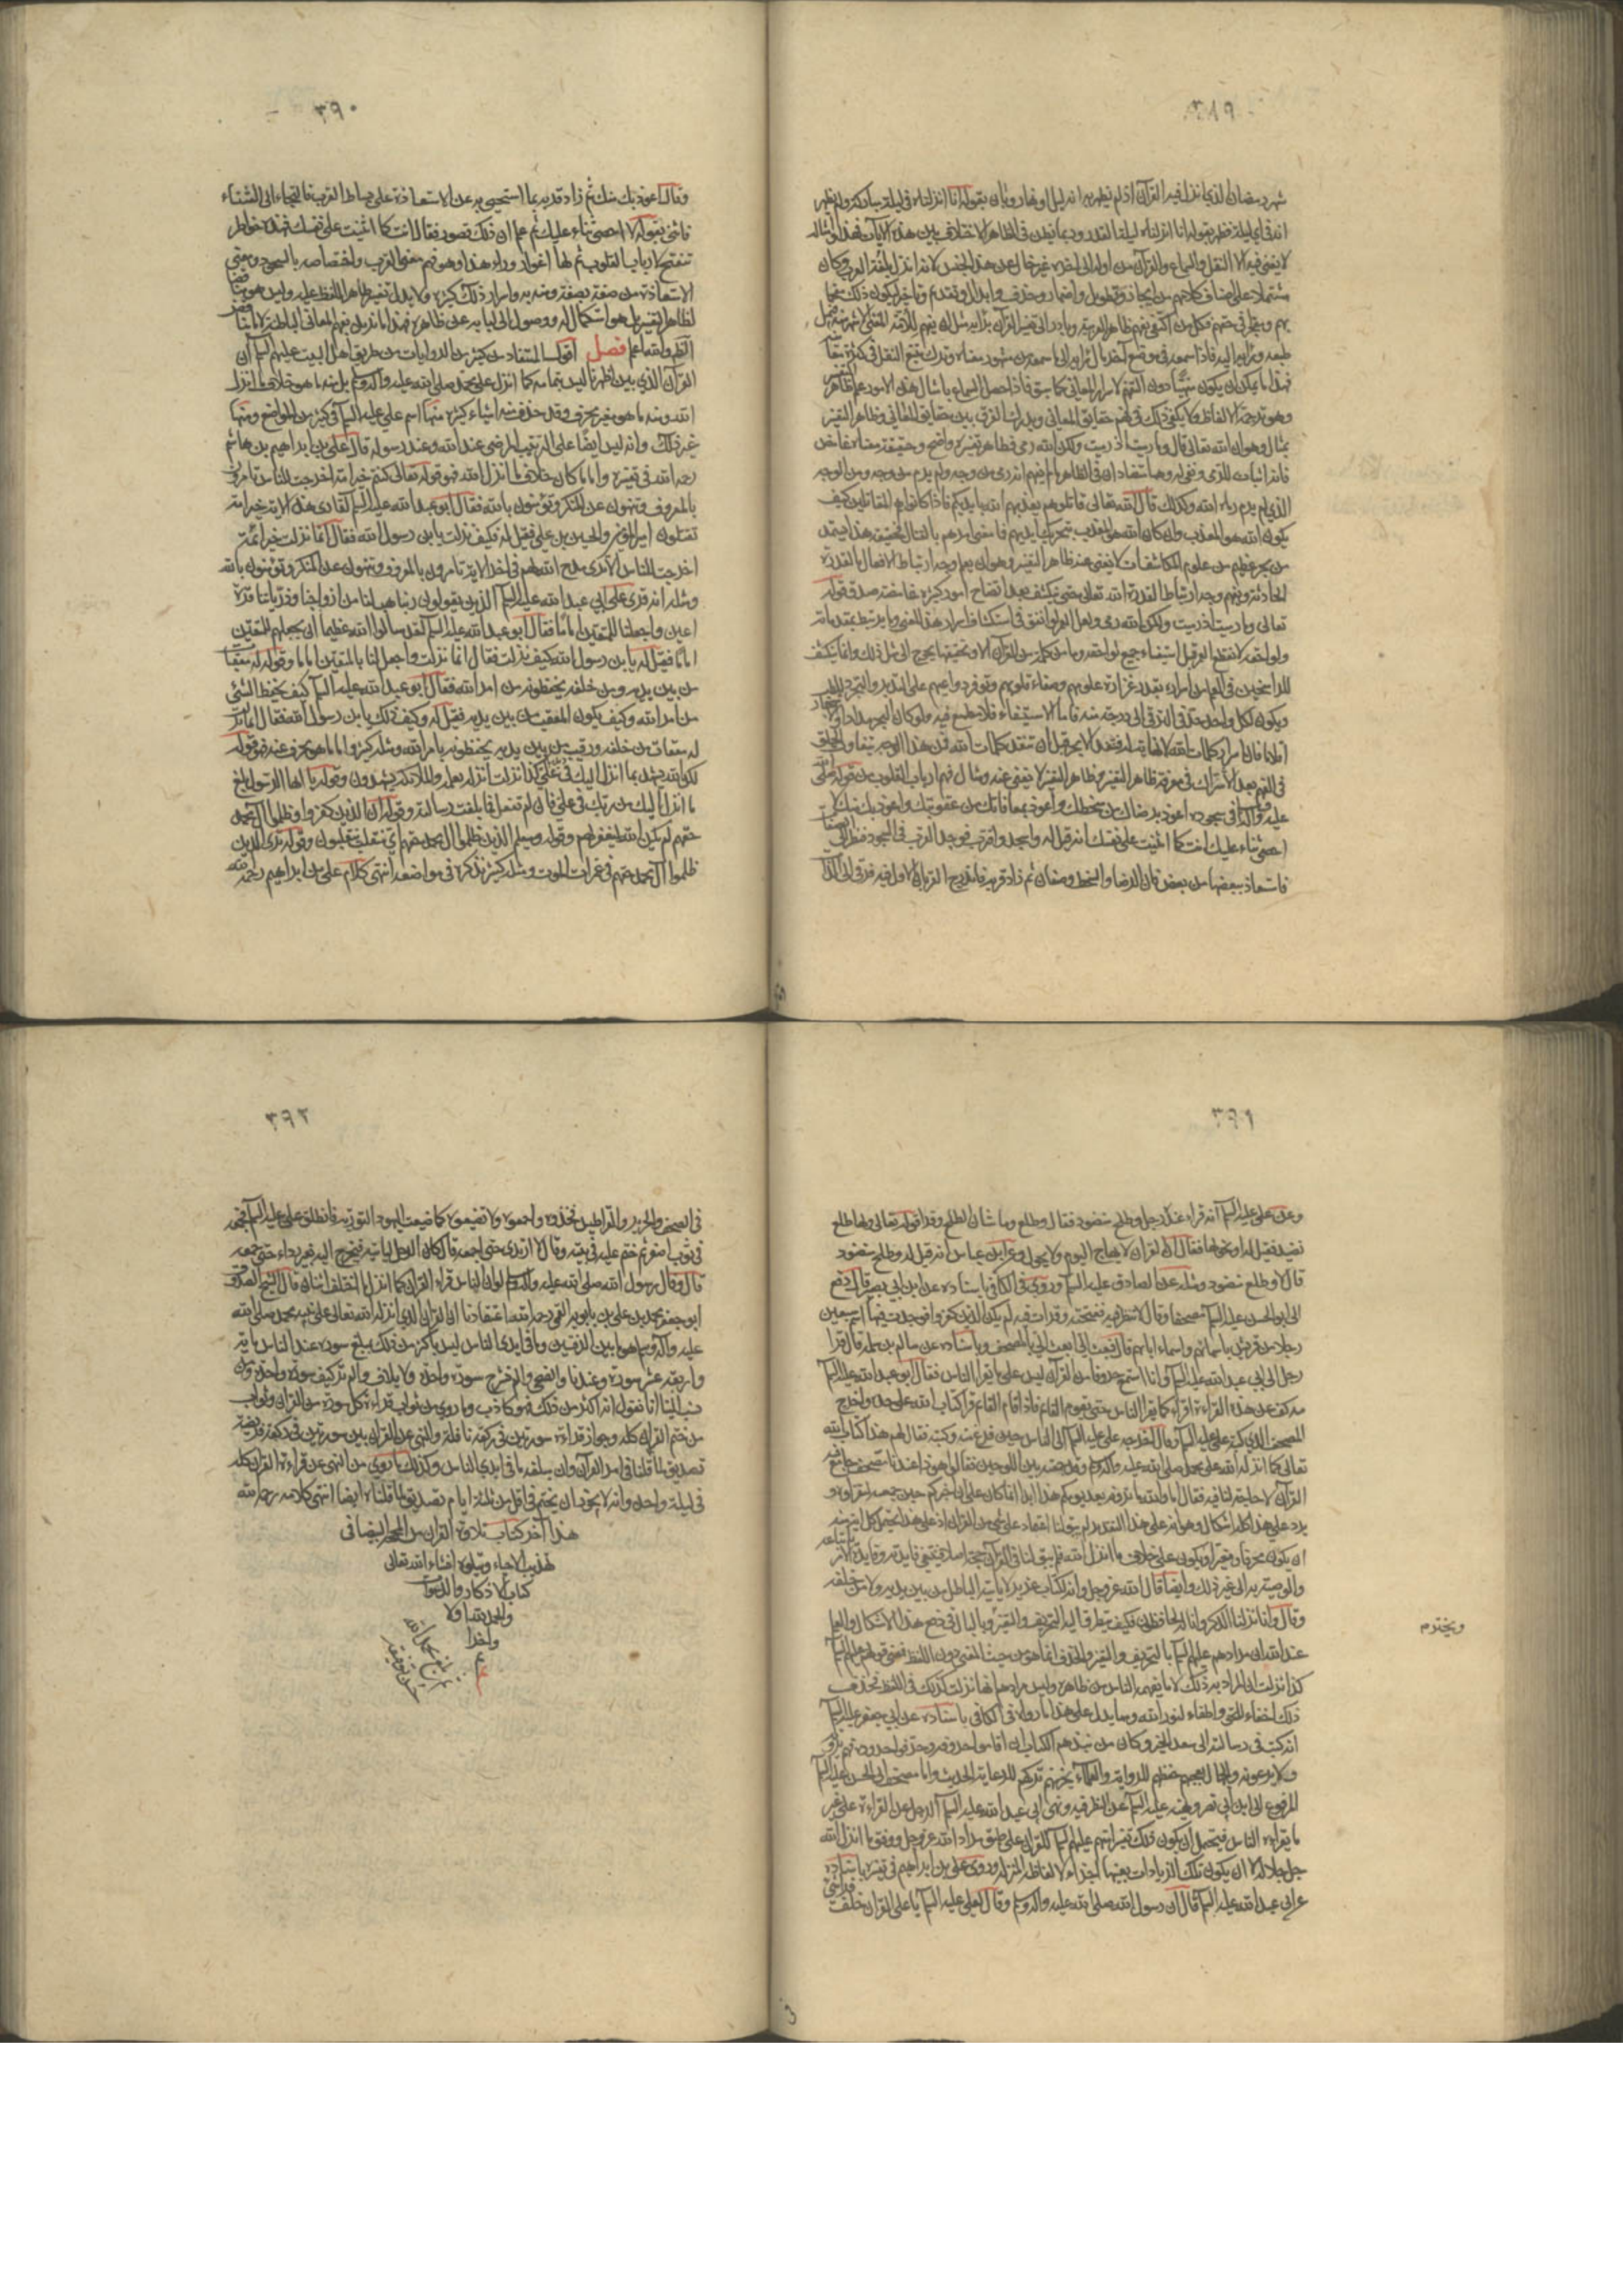 ٣٨٩
شهر رمضان الذي انزل فيه القرآن اذ لم يظهر به انه ليل او نهار وبان بقوله انا انزلناه في ليلة مباركة ولم يظهر
انه في اي ليلة فظهر بقوله انا انزلناه في ليلة القدر وربما يظن في الظاهر الاختلاف بين هذه الآيات فهذا وامثاله
لا يغني فيه الا النقل والسماع والقرآن من اوله الى آخره غير خال عن هذا الجنس لانه انزل بلغة العرب وكان
مشتملا على اصناف كلامهم من ايجاز وتطويل واضمار وحذف وابدال وتقديم وتاخير ليكون ذلك مفحما
لهم ومعجزا في حقهم فكل من اكتفى بفهم ظاهر العربية وبادر الى تفسير القرآن
طبعه ورأيه اليه فاذا سمعه في موضع آخر مال برأيه الى ما سمعه من مشهور معناه وترك تتبع النقل في كثرة معانيه
فهذا ما يمكن ان يكون منهيا دون التفهم لاسرار المعاني كما سبق فاذا حصل السماع بامثال هذه الامور علم ظاهر التفسير
وهو ترجمة الالفاظ ولا يكفي ذلك في فهم حقايق المعاني ويدرك الفرق بين حقايق المعاني وظاهر التفسير
بمثال وهو ان الله تعالى قال وما رميت اذ رميت ولكن الله رمى فظاهر تفسيره واضح وحقيقة معناه غامض
فانه اثبات للرمي ونفي له وهما متضادان في الظاهر ما لم يفهم انه رمى من وجه ولم يرم من وجه ومن الوجه
الذي لم يرم رماه الله وكذلك قال الله تعالى قاتلوهم يعذبهم الله بايديكم فاذا كانوا هم المقاتلين كيف
يكون الله هو المعذب وان كان الله هو المعذب بتحريك ايديهم فما معنى امرهم بالقتال فحقيقة هذا يستمد
من بحر عظيم من علوم المكاشفات لا يغني عنه ظاهر التفسير وهو ان يعلم وجه ارتباط الافعال بالقدرة
الحادثة ويفهم وجه ارتباط القدرة بقدرة الله تعالى حتى ينكشف بعد ايضاح امور كثيرة غامضة صدق قوله
تعالى وما رميت اذ رميت ولكن الله رمى ولعل العمر لو انفق في استكشاف اسرار هذا المعنى وما يرتبط بمقدماته
ولواحقه لانقضى العمر قبل استيفاء جميع لواحقه وما من كلمة من القرآن الا وتحقيقها يحوج الى مثل ذلك وانما ينكشف
للراسخين في العلم من اسراره بقدر غزارة علومهم وصفاء قلوبهم وتوفر دواعيهم على التدبر والتجرد للطلب
ويكون لكل واحد حد في الترقي الى درجة منه فاما الاستيفاء فلا مطمع فيه ولو كان البحر مدادا والاشجار
اقلاما فان اسرار كلمات الله لا نهاية لها فتنفد الابحر قبل ان تنفد كلمات الله فمن هذا الوجه يتفاوت الخلق
في الفهم بعد الاشتراك في معرفة ظاهر التفسير وظاهر التفسير لا يغني عنه ومثال فهم ارباب القلوب من قوله صلى الله
عليه وآله في سجوده اعوذ برضاك من سخطك واعوذ بمعافاتك من عقوبتك واعوذ بك منك لا
احصي ثناء عليك انت كما اثنيت على نفسك انه قيل له واسجد واقترب فوجد القرب في السجود فنظر الى الصفات
فاستعاذ ببعضها من بعض فان الرضا والسخط وصفان ثم زاد قربه فاندرج القرب الاول فيه فرقى الى الذات
٣٩٠
وقال اعوذ بك منك ثم زاد قربه بما استحيى به عن الاستعاذة على بساط القرب فالتجأ الى الثناء
فاثنى بقوله لا احصي ثناء عليك ثم علم ان ذلك قصور فقال انت كما اثنيت على نفسك فهذه خواطر
تنفتح لارباب القلوب ثم لها اغوار وراء هذا وهو فهم معنى القرب واختصاصه بالسجود ومعنى
الاستعاذة من صفة بصفة ومنه به واسرار ذلك كثيرة ولا يدل تفسير ظاهر اللفظ عليه وليس هو مناقضا
لظاهر التفسير بل هو استكمال له ووصول الى لبابه عن ظاهره فهذا ما نريد بفهم المعاني الباطنة لا ما يناقض
الظاهر والله اعلم فصل اقول المستفاد من كثير من الروايات من طريق اهل البيت عليهم السلم ان
القرآن الذي بين اظهرنا ليس بتمامه كما انزل على محمد صلى الله عليه وآله وسلم بل منه ما هو خلاف ما انزل
الله ومنه ما هو مغير محرف وقد حذف منه اشياء كثيرة منها اسم علي عليه السلم في كثير من المواضع ومنها
غير ذلك وانه ليس ايضا على الترتيب المرضي عند الله وعند رسوله قال علي بن ابراهيم بن هاشم
رحمه الله في تفسيره واما ما كان خلاف ما انزل الله فهو قوله تعالى كنتم خير امة اخرجت للناس تأمرون
بالمعروف وتنهون عن المنكر وتؤمنون بالله فقال ابو عبد الله عليه السلم لقاري هذه الاية خير امة
تقتلون امير المؤمنين والحسين بن علي فقيل له فكيف نزلت يا بن رسول الله فقال انما نزلت خير ائمة
اخرجت للناس الا ترى مدح الله لهم في آخر الاية تأمرون بالمعروف وتنهون عن المنكر وتؤمنون بالله
ومثله انه قرئ على ابي عبد الله عليه السلم الذين يقولون ربنا هب لنا من ازواجنا وذرياتنا قرة
اعين واجعلنا للمتقين اماما فقال ابو عبد الله عليه السلم لقد سألوا الله عظيما ان يجعلهم للمتقين
اماما فقيل له يا بن رسول الله كيف نزلت فقال انما نزلت واجعل لنا من المتقين اماما وقوله له معقبات
من بين يديه ومن خلفه يحفظونه من امر الله فقال ابو عبد الله عليه السلم كيف يحفظ الشئ
من امر الله وكيف يكون المعقب من بين يديه فقيل له وكيف ذلك يا بن رسول الله فقال انما نزلت
له معقبات من خلفه ورقيب من بين يديه يحفظونه بامر الله ومثله كثير واما ما هو محرف عنه فهو قوله
لكن الله يشهد بما انزل اليك في علي كذا نزلت انزله بعلمه والملائكة يشهدون وقوله يا ايها الرسول بلغ
ما انزل اليك من ربك في علي فان لم تفعل فما بلغت رسالته وقوله ان الذين كفروا وظلموا آل محمد
حقهم لم يكن الله ليغفر لهم وقوله وسيعلم الذين ظلموا آل محمد حقهم اي منقلب ينقلبون وقوله ترى الذين
ظلموا آل محمد حقهم في غمرات الموت ومثله كثير نذكره في مواضعه انتهى كلام علي بن ابراهيم رحمه الله
٣٩١
وعن علي عليه السلم انه قراء عنده رجل وطلح منضود فقال وطلح وما شان الطلح وقرأ قوله تعالى ولها طلع
نضيد فقيل له او نحولها فقال ان القرآن لا يهاج اليوم ولا يحول وعن ابن عباس انه قيل له وطلح منضود
قال لا وطلع منضود ومثله عن الصادق عليه السلم وروى في الكافي باسناده عن ابن ابي نصر قال دفع
الي ابو الحسن عليه السلم مصحفا وقال لا تنظر فيه ففتحته وقرأت فيه لم يكن الذين كفروا فوجدت فيها اسم سبعين
رجلا من قريش باسمائهم واسماء ابائهم قال فبعث الي ابعث الي بالمصحف وباسناده عن سالم بن سلمة قال قرأ
رجل على ابي عبد الله عليه السلم وانا استمع حروفا من القرآن ليس على ما يقرأ الناس فقال ابو عبد الله عليه السلم
مه كف عن هذه القراءة اقراء كما يقرا الناس حتى يقوم القائم فاذا قام القائم قرأ كتاب الله على حده واخرج
المصحف الذي كتبه علي عليه السلم وقال اخرجه علي عليه السلم الى الناس حين فرغ منه وكتبه فقال لهم هذا كتاب الله
تعالى كما انزله الله على محمد صلى الله عليه وآله وسلم وقد جمعته بين اللوحين فقالوا هو ذا عندنا مصحف جامع فيه
القرآن لا حاجة لنا فيه فقال اما والله ما ترونه بعد يومكم هذا ابدا انما كان علي ان اخبركم حين جمعته لتقرأوه و
يرد على هذا كله اشكال وهو انه على هذا التقدير لم يبق لنا اعتماد على شئ من القرآن اذ على هذا يحتمل كل اية منه
ان يكون محرفا ومغيرا ويكون على خلاف ما انزل الله فلم يبق لنا في القرآن حجة اصلا فتنتفي فايدته وفايدة الامر باتباعه
والوصية به الى غير ذلك وايضا قال الله عز وجل وانه لكتاب عزيز لا يأتيه الباطل من بين يديه ولا من خلفه
وقال وانا نزلنا الذكر وانا له لحافظون فكيف يتطرق اليه التحريف والتغيير ويخطر بالبال في دفع هذا الاشكال والعلم
عند الله ان مرادهم عليهم السلم بالتحريف والتغيير والحذف انما هو من حيث المعنى دون اللفظ فمعنى قولهم عليهم السلم
كذا نزلت ان المراد به ذلك لا ما يفهمه الناس من ظاهره وليس مرادهم انها نزلت كذلك في اللفظ فحذف
ذلك اخفاء للحق واطفاء لنور الله ومما يدل على هذا ما رواه في الكافي باسناده عن ابي جعفر عليه السلم
انه كتب في رسالته الى سعد الخير وكان من نبذهم الكتاب ان اقاموا حروفه وحرفوا حدوده فهم يروونه
ولا يرعونه والجهال يعجبهم حفظهم للرواية والعلماء يحزنهم تركهم للرعاية الحديث واما مصحف ابي الحسن عليه السلم
المرفوع الى ابن ابي نصر ونهيه عليه السلم عن النظر فيه ونهي ابي عبد الله عليه السلم الرجل عن القراءة على غير
ما يقراءه الناس فيحتمل ان يكون ذلك تفسيرا منهم عليهم السلم للقرآن على طبق مراد الله عز وجل ووفق ما انزل الله
جل جلاله لا ان يكون تلك الزيادات بعينها اجزاء لالفاظه المنزلة وروى علي بن ابراهيم في تفسيره باسناده
عن ابي عبد الله عليه السلم قال ان رسول الله صلى الله عليه وآله وسلم وقال لعلي عليه السلم يا علي القرآن خلف فراشي
٣٩٢
في الصحف والحرير والقراطيس فخذوه واجمعوه ولا تضيعوه كما ضيعت اليهود التورية فانطلق علي عليه السلم فجمعه
في ثوب اصفر ثم ختم عليه في بيته وقال لا ارتدي حتى اجمعه قال كان الرجل ليأتيه فيخرج اليه بغير رداء حتى جمعه
قال وقال رسول الله صلى الله عليه وآله وسلم لو ان الناس قراءوا القرآن كما انزل ما اختلف اثنان قال الشيخ الصدوق
ابو جعفر محمد بن علي بن بابويه القمي رحمه الله اعتقادنا ان القرآن الذي انزله الله تعالى على نبيه محمد صلى الله
عليه وآله وسلم هو ما بين الدفتين وما في ايدي الناس ليس باكثر من ذلك ومبلغ سوره عند الناس مائة
واربعة عشر سورة وعندنا والضحى والم نشرح سورة واحدة ولايلاف والم تر كيف سورة واحدة ومن
نسب الينا انا نقول انه اكثر من ذلك فهو كاذب وما روي من ثواب قراءة كل سورة من القرآن وثواب
من ختم القرآن كله وجواز قراءة سورتين في ركعة نافلة والنهي عن القران بين سورتين في ركعة فريضة
تصديق لما قلنا في امر القرآن وان مبلغه ما في ايدي الناس وكذلك ما روي من النهي عن قراءة القرآن كله
في ليلة واحدة وانه لا يجوز ان يختم في اقل من ثلثة ايام تصديق لما قلناه ايضا انتهى كلامه رحمه الله
هذا آخر كتاب تلاوة القرآن من المحجة البيضاء في
تهذيب الاحياء ويتلوه ان شاء الله تعالى
كتاب الاذكار والدعوات
والحمد لله اولا
واخرا